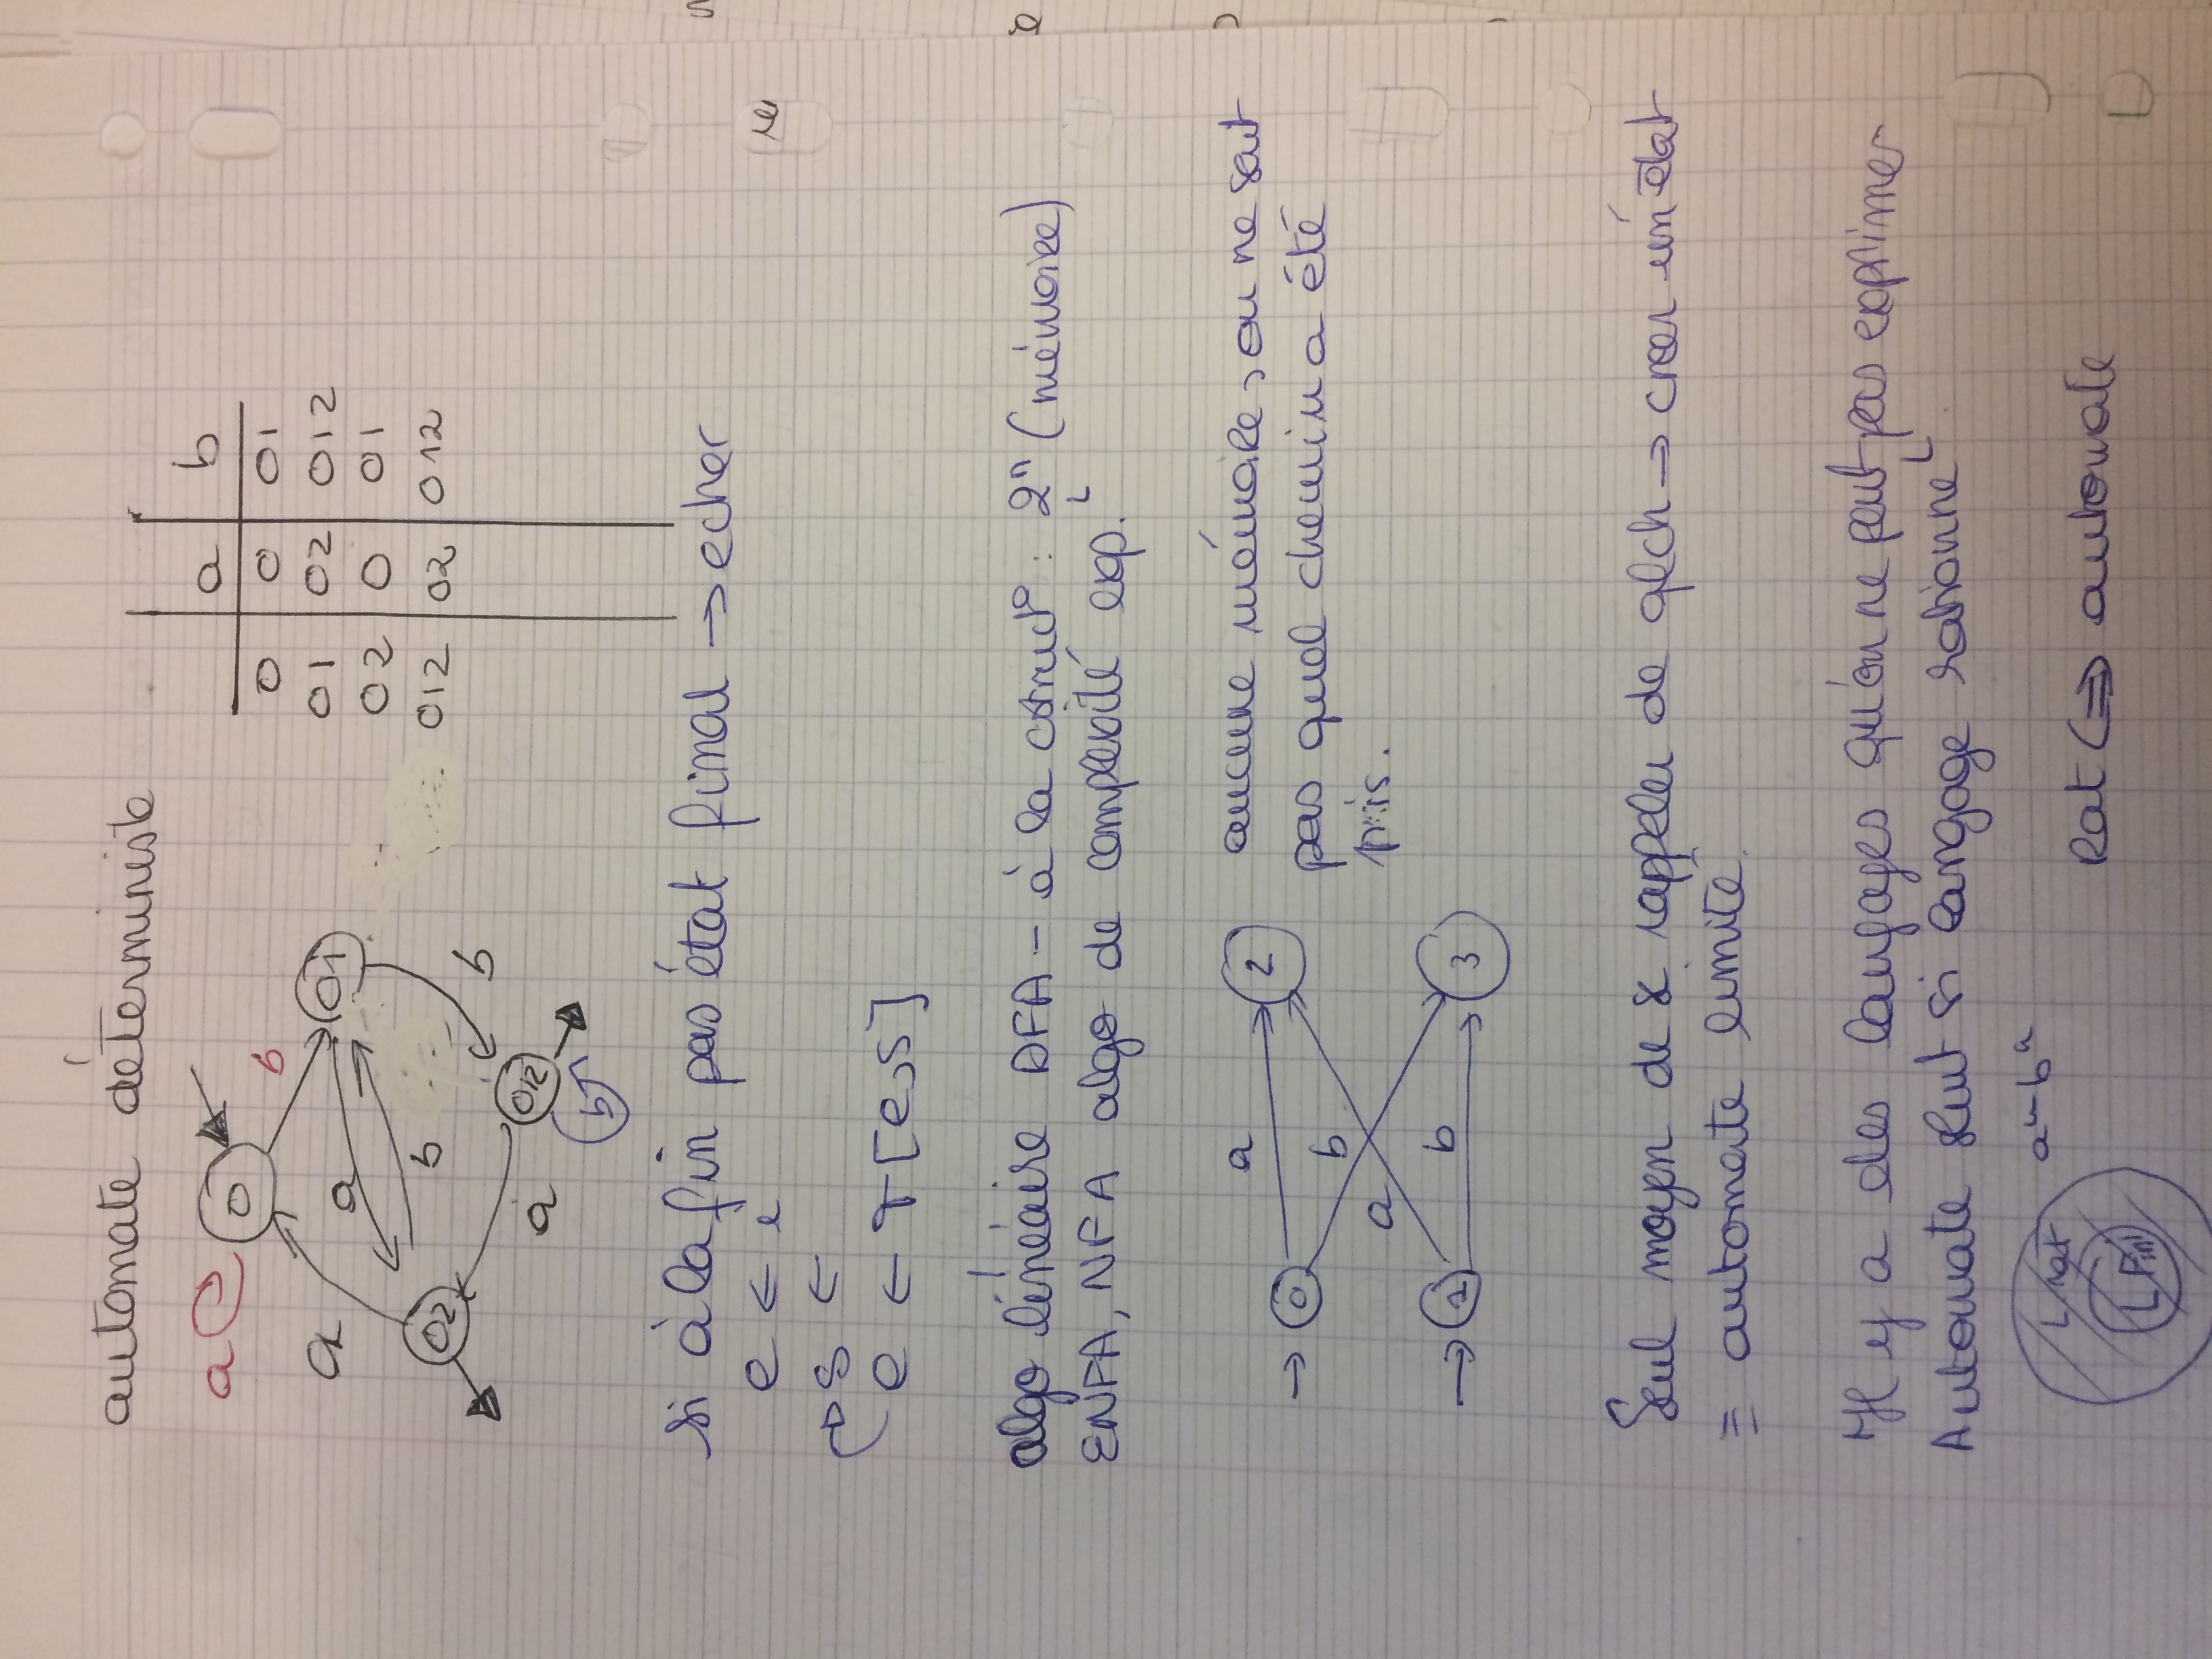 automate déterministe
a b
0 0 01
01 02 012
02 0 01
012 02 012
a 0 b
a a 01
b
02 b
a 012
b
si à la fin pas état final → echec
e ← i
s ←
e ← T[e,s]
algo linéaire DFA - à la construct° : 2ⁿ (mémoire)
ENFA, NFA algo de complexité exp.L
a
0 2
b
a
b
2 3
aucune mémoire, on ne sait
pas quel chemin a été
pris.
Seul moyen de se rappeler de qlch → creer un état
= automate limité.
Il y a des langages qu'on ne peut pas exprimer
Automate seult si langage rationnel
L rat aⁿ bⁿ
L Fini
Rat ⟺ automate